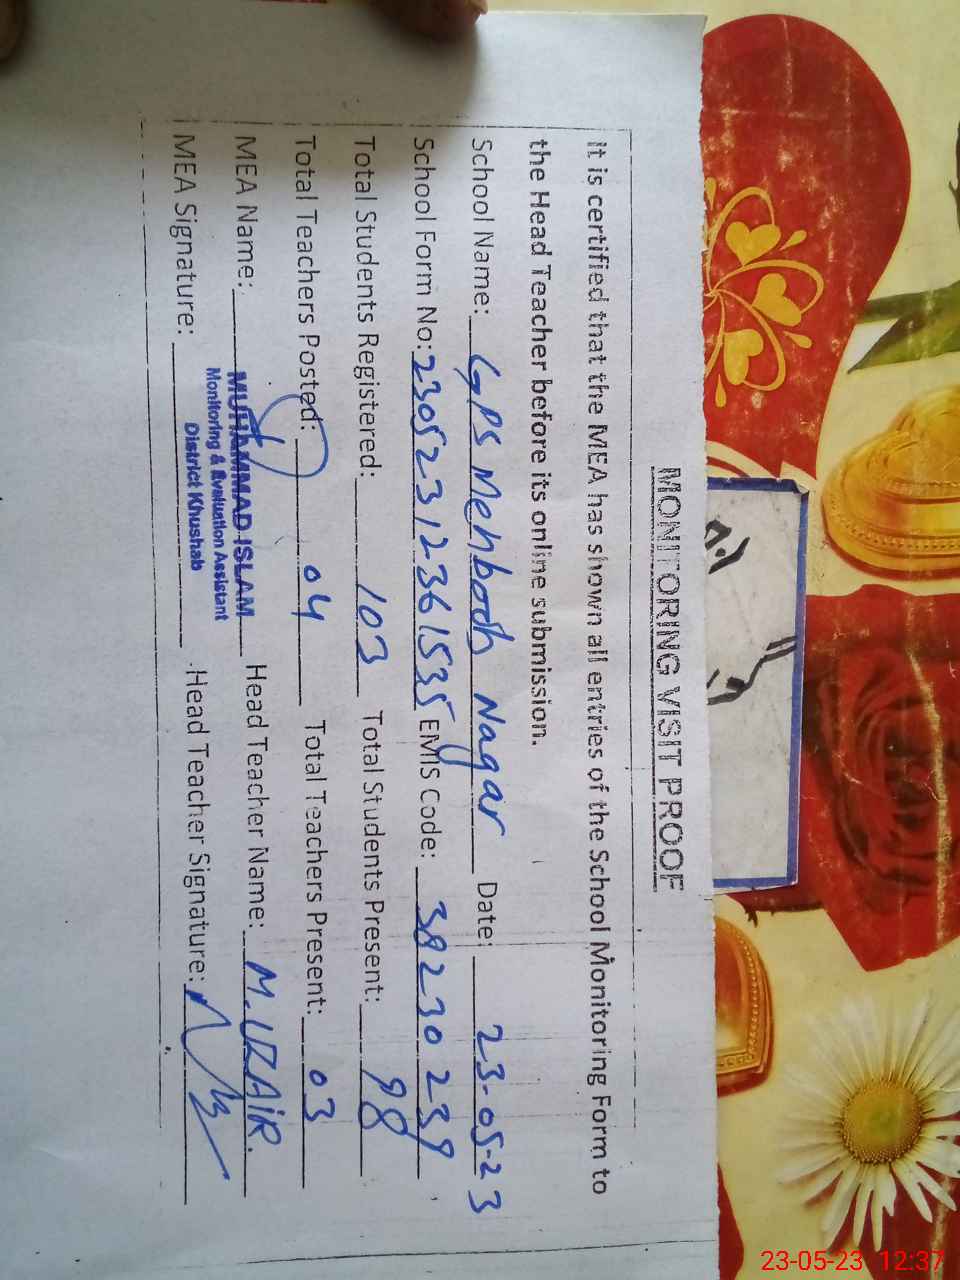 MONITORING VISIT PROOF
It is certified that the MEA has shown all entries of the School Monitoring Form to
the Head Teacher before its online submission.
School Name: GPS Mehboob Nagar Date: 23-05-23
School Form No: 23052312361535 EMIS Code: 38230239
Total Students Registered: 103 Total Students Present: 98
Total Teachers Posted: 04 Total Teachers Present: 03
MEA Name: MUHAMMAD ISLAM Head Teacher Name: M. UZAIR.
Monitoring & Evaluation Assistant
District Khushab
MEA Signature: Head Teacher Signature:
23-05-23 12:37